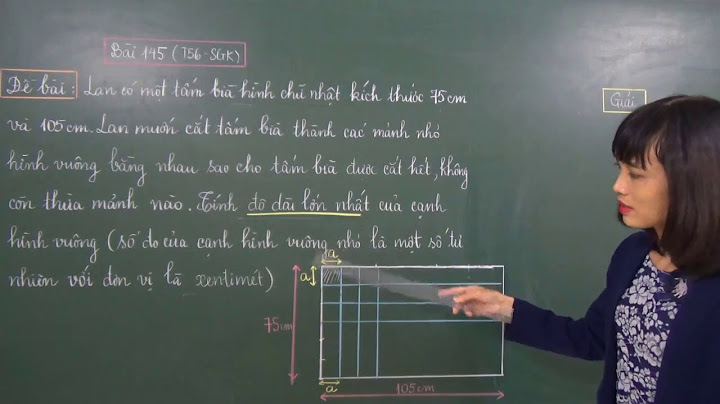 Bài 145 (T56-SGK)
Đề bài: Lan có một tấm bìa hình chữ nhật kích thước 75cm
và 105cm. Lan muốn cắt tấm bìa thành các mảnh nhỏ
hình vuông bằng nhau sao cho tấm bìa được cắt hết, không
còn thừa mảnh nào. Tính độ dài lớn nhất của cạnh
hình vuông (số đo của cạnh hình vuông nhỏ là một số tự
nhiên với đơn vị là xentimét)
Giải
a
a
75cm
a
105cm